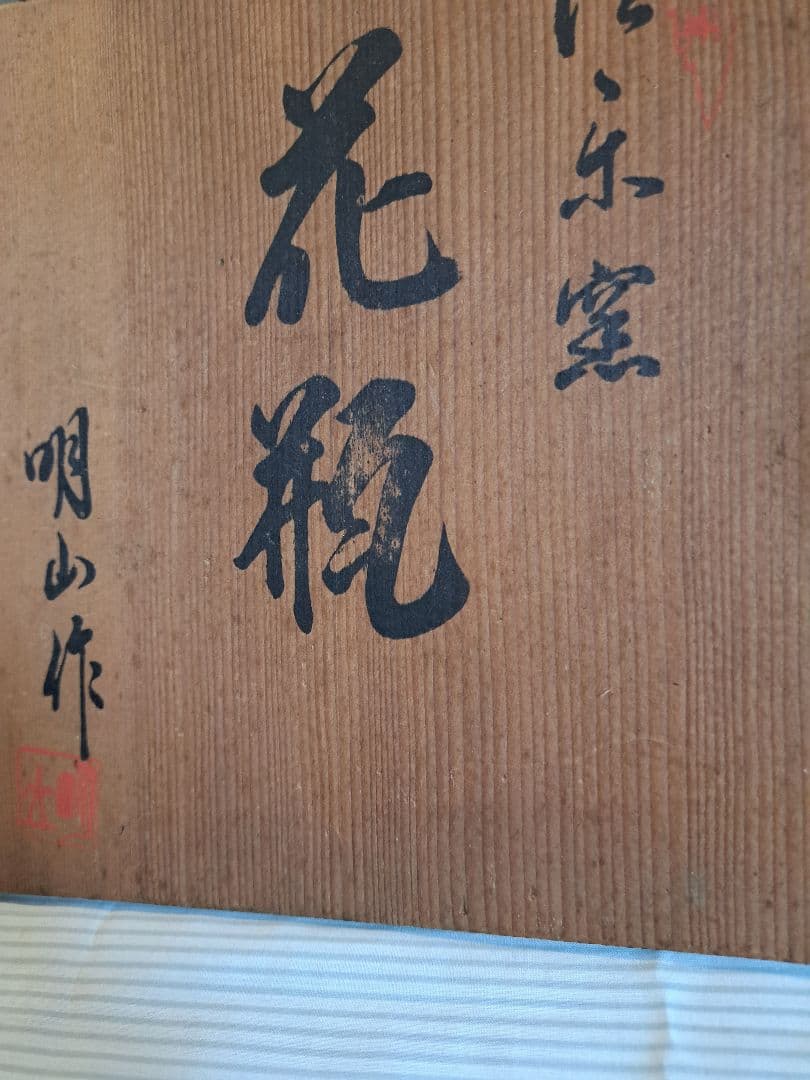 楽窯
花瓶
明山作